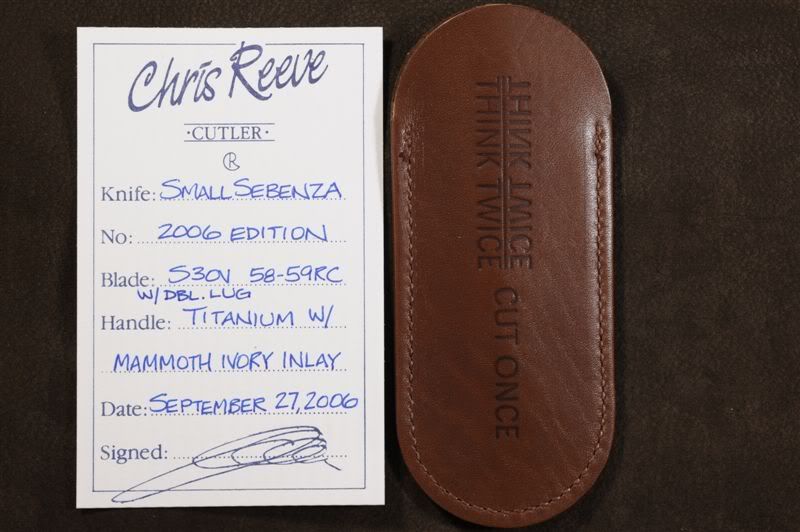 Chris Reeve
·CUTLER·
R
Knife: SMALL SEBENZA
No: 2006 EDITION
Blade: S30V 58-59RC
W/ DBL. LUG
Handle: TITANIUM W/
MAMMOTH IVORY INLAY
Date: SEPTEMBER 27, 2006
Signed:
THINK TWICE
THINK TWICE CUT ONCE